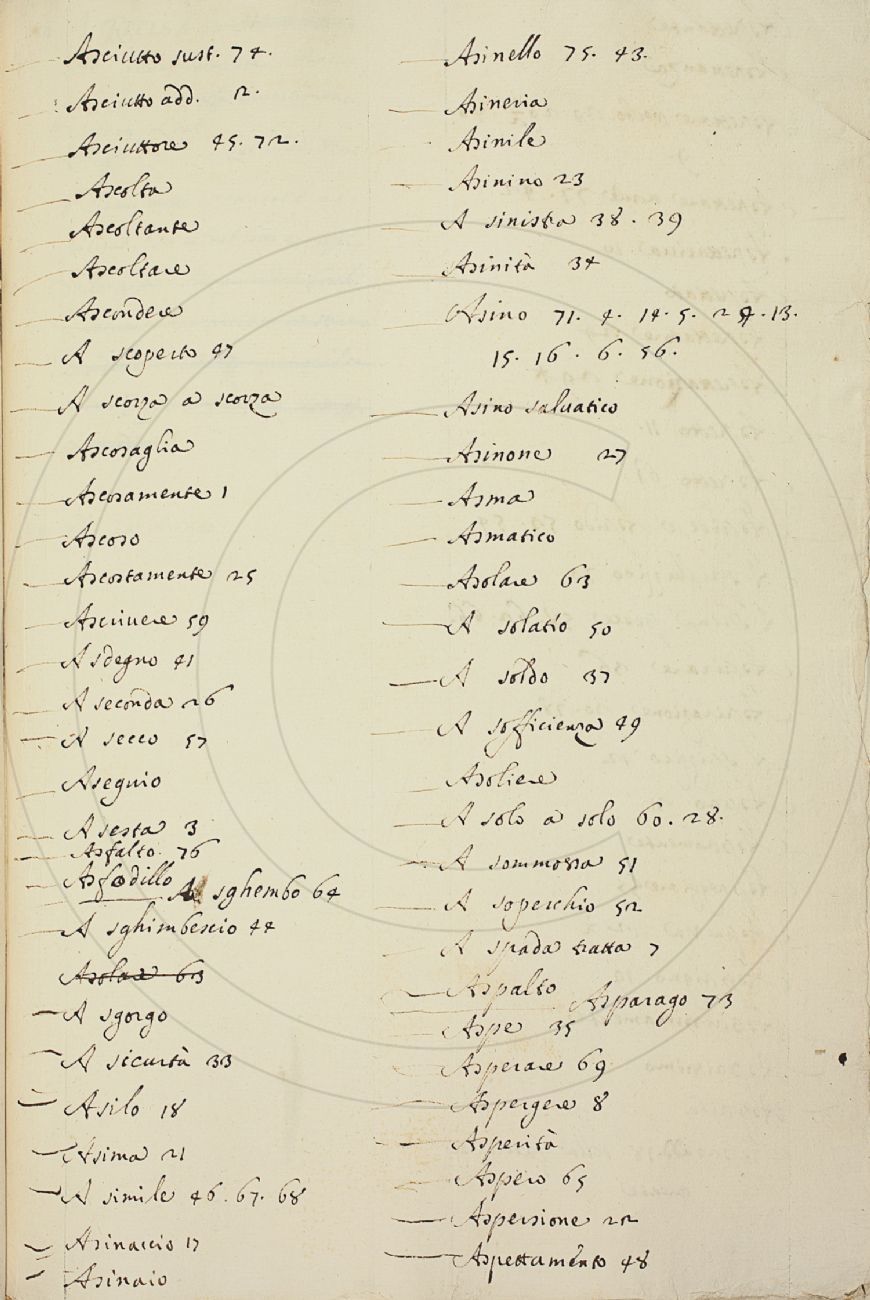 Asciutto sust. 74.
Asciutto add. 2.
Asciuttore 45. 72.
Ascolta
Ascoltante
Ascoltare
Ascondere
A scoperto 47
A scorza a scorza
Ascosaglia
Ascosamente 1
Ascoso
Ascostamente 25
Ascrivere 59
A sdegno 41
A seconda 26
A secco 57
Aseguio
A sesta 3
Asfalto. 76
Asfodillo
A sghembo 64
A sghimbescio 44
Asolare 63
A sgorgo
A sicurtà 33
Asilo 18
Asima 21
A simile 46. 67. 68
Asinaccio 17
Asinaio
Asinello 75. 43.
Asineria
Asinile
Asinino 23
A sinistra 38. 39
Asinità 34
Asino 71. 4. 14. 5. 29. 13.
15. 16. 6. 56.
Asino salvatico
Asinone 27
Asma
Asmatico
Asolare 63
A solatìo 50
A soldo 37
A sofficienza 49
Asoliere
A solo a solo 60. 28.
A sommossa 51
A soperchio 52
A spada tratta 7
Aspalto
Asparago 73
Aspe 35
Asperare 69
Aspergere 8
Asperità
Aspero 65
Aspersione 22
Aspettamento 48